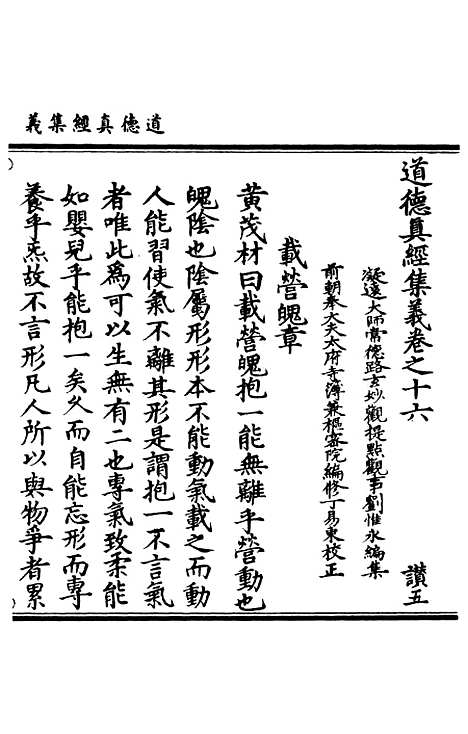 道德真經集義
道德真經集義卷之十六 讚五
凝遠大師常德路玄妙觀提點觀事劉惟永編集
前朝奉大夫太府寺簿兼樞密院編修丁易東校正
載營魄章
黃茂材曰載營魄抱一能無離乎營動也
魄陰也陰屬形形本不能動氣載之而動
人能習使氣不離其形是謂抱一不言氣
者唯此爲可以生無有二也專氣致柔能
如嬰兒乎能抱一矣久而自能忘形而專
養乎炁故不言形凡人所以與物爭者累